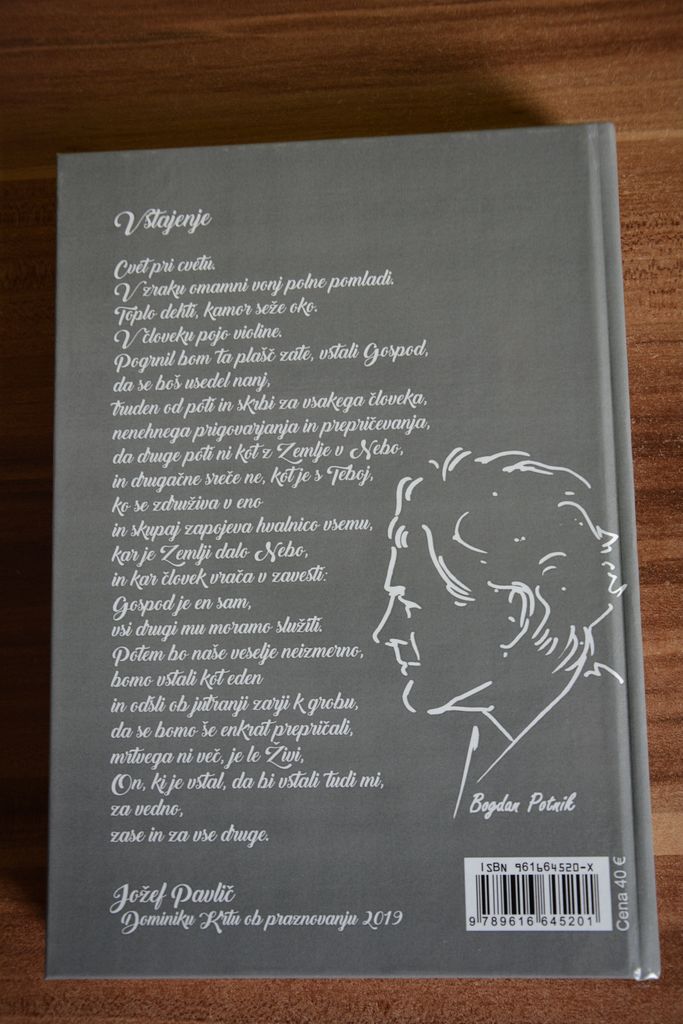 Vstajenje
Cvet pri cvetu.
V zraku omamni vonj polne pomladi.
Toplo dehti, kamor seže oko.
V človeku pojo violine.
Pogrnil bom ta plašč zate, vstali Gospod,
da se boš usedel nanj,
truden od poti in skrbi za vsakega človeka,
nenehnega prigovarjanja in prepričevanja,
da druge poti ni kot z Zemlje v Nebo,
in drugačne sreče ne, kot je s Teboj,
ko se združiva v eno
in skupaj zapojeva hvalnico vsemu,
kar je Zemlji dalo Nebo,
in kar človek vrača v zavesti:
Gospod je en sam,
vsi drugi mu moramo služiti.
Potem bo naše veselje neizmerno,
bomo vstali kot eden
in odšli ob jutranji zarji k grobu,
da se bomo še enkrat prepričali,
mrtvega ni več, je le Živi,
On, ki je vstal, da bi vstali tudi mi,
za vedno,
zase in za vse druge.
Bogdan Potnik
Jožef Pavlič
Dominiku Krtu ob praznovanju 2019
ISBN 961664520-X
9 789616 645201
Cena 40 €